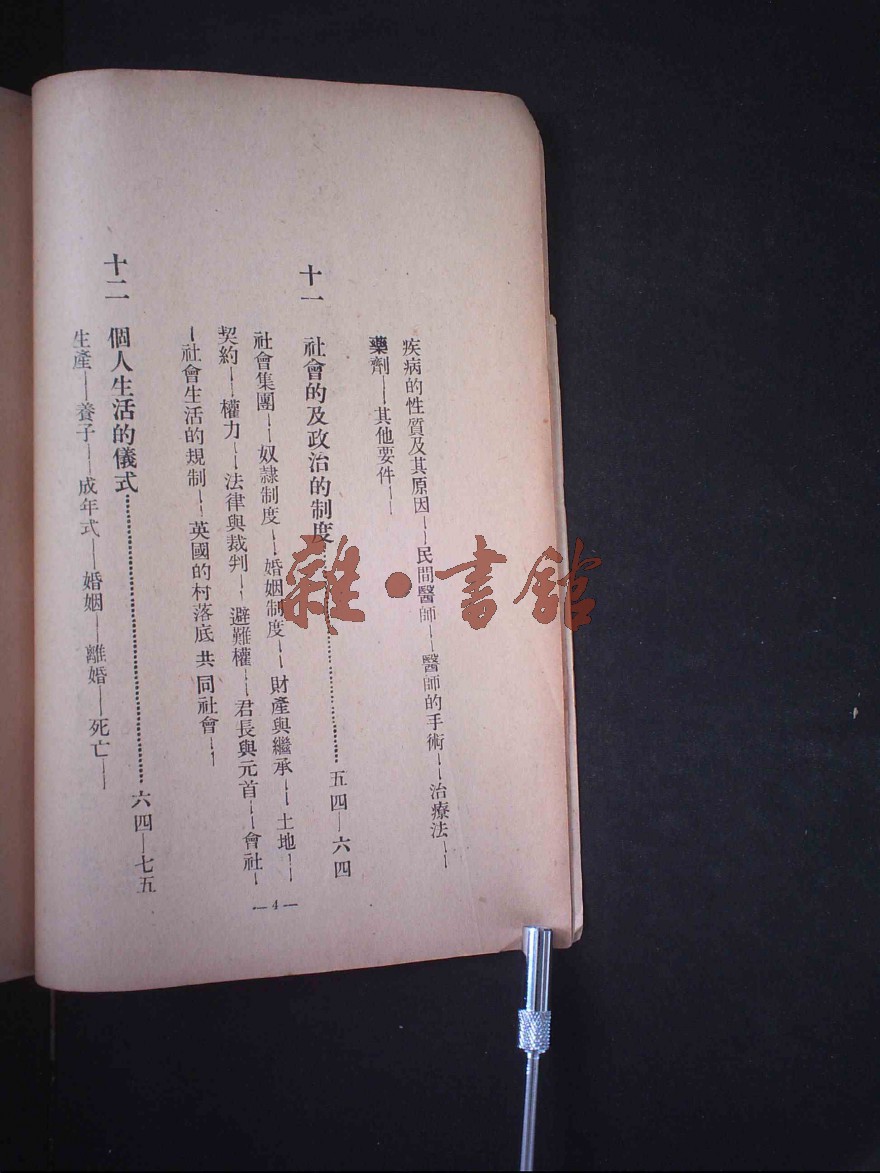 疾病的性質及其原因——民間醫師——醫師的手術——治療法——
藥劑——其他要件——
十一 社會的及政治的制度……………………五四—六四
社會集團——奴隷制度——婚姻制度——財產與繼承——土地——
契約——權力——法律與裁判——避難權——君長與元首——會社—
—社會生活的規制——英國的村落底共同社會——
十二 個人生活的儀式……………………六四—七五
生產——養子——成年式——婚姻——離婚——死亡——
—4—
雜·書館